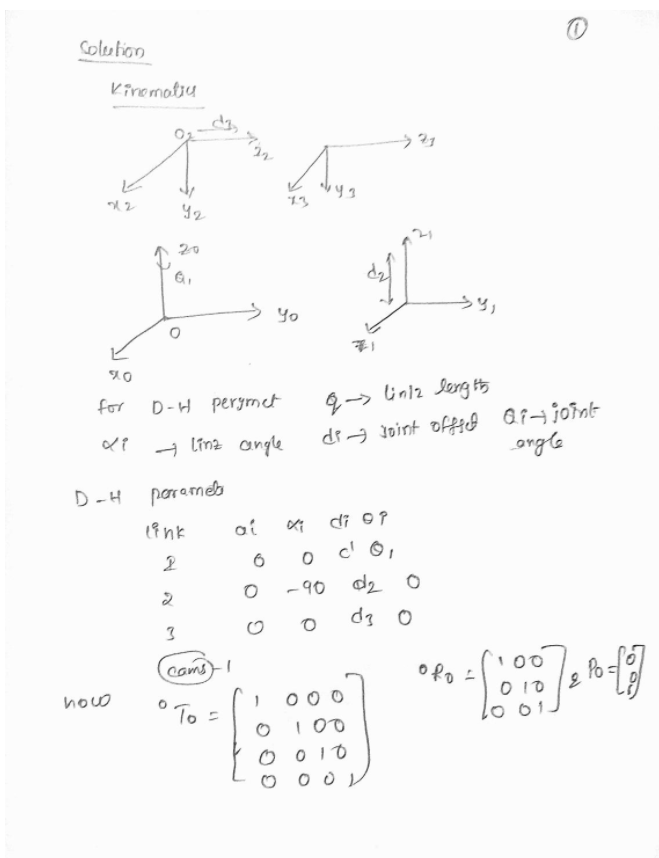 ①
Solution
Kinematics
O2 d3 z2
x2 y2
z3
x3 y3
z0
θ1
y0
O
x0
z1
d2
y1
for D-H pergmet q → link length
αi → link angle di → Joint offset θi → joint
angle
D-H paramets
link ai αi di θi
0 0 d1 θ1
2 0 -90 d2 0
3 0 0 d3 0
cams-1
now ⁰T₀ = [1 0 0 0
0 1 0 0
0 0 1 0
0 0 0 1]
⁰R₀ = [1 0 0
0 1 0
0 0 1] & P₀ = [0
0